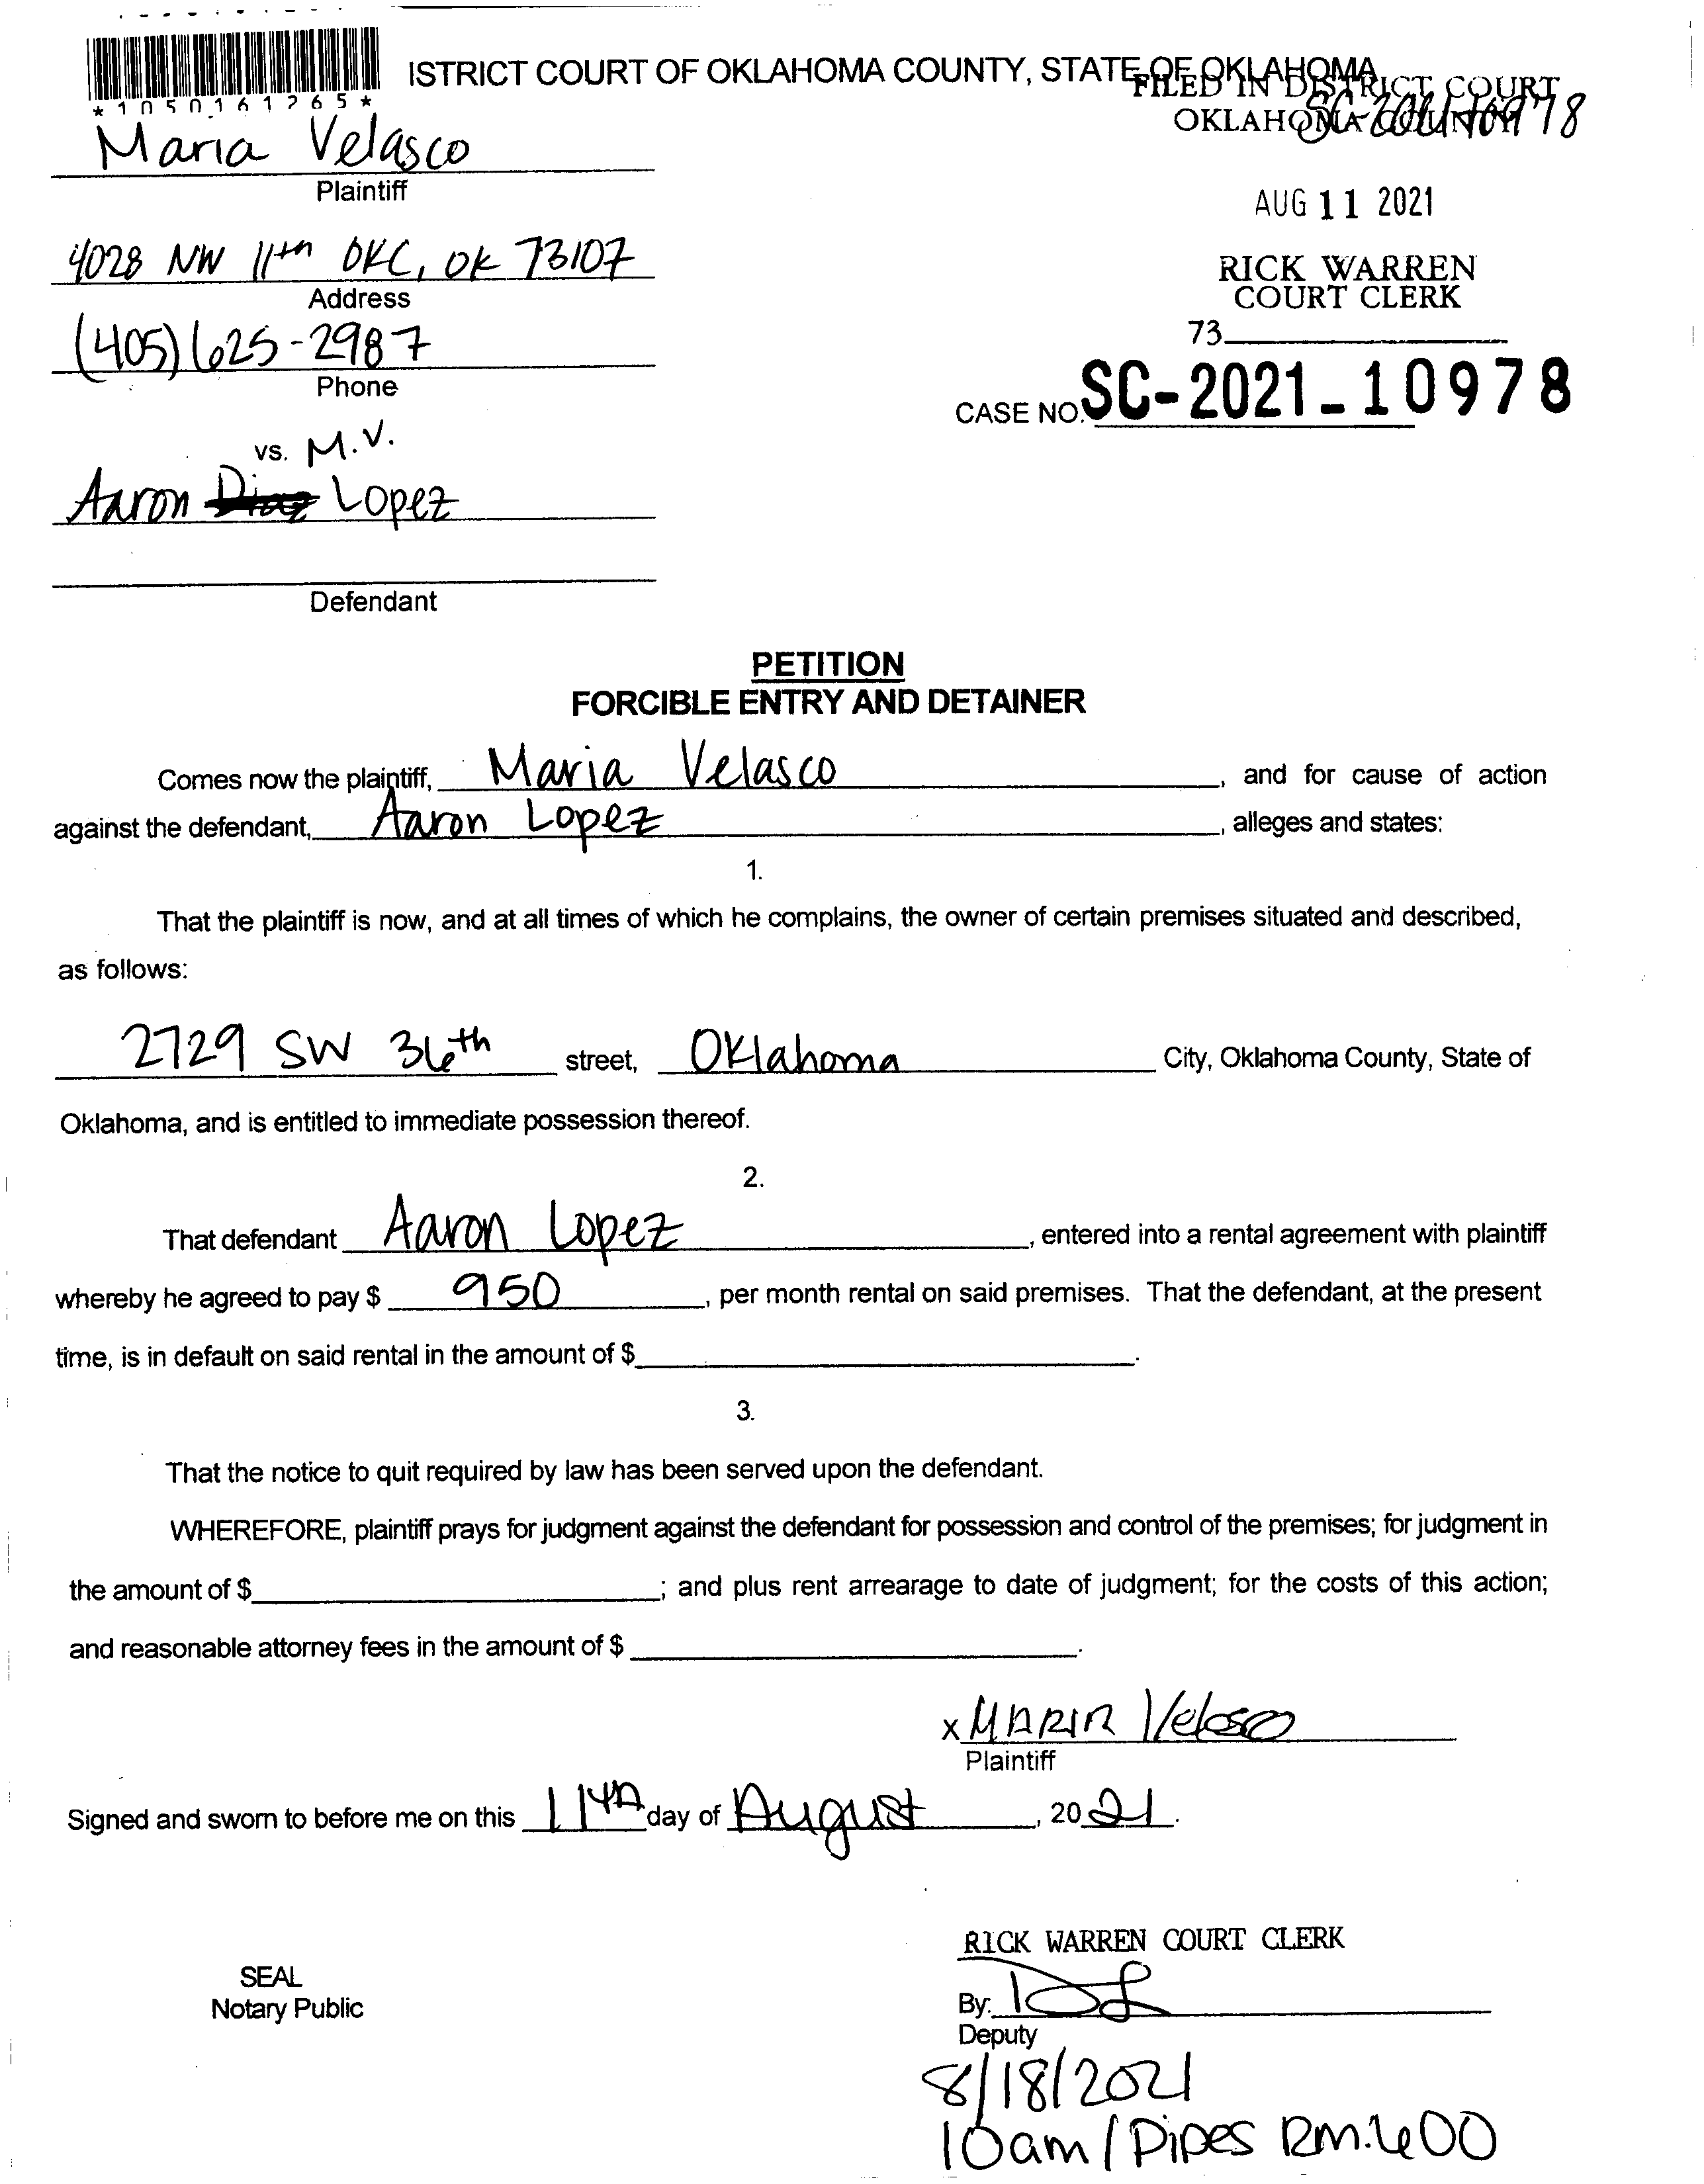 *1050161265*
ISTRICT COURT OF OKLAHOMA COUNTY, STATE OF OKLAHOMA
FILED IN DISTRICT COURT
OKLAHOMA COUNTY
SC-2021-10978
Maria Velasco
Plaintiff
AUG 11 2021
4028 NW 11th OKC, OK 73107
Address
RICK WARREN
COURT CLERK
(405) 625-2987
Phone
73
CASE NO. SC-2021-10978
vs. M.V.
Aaron Diaz Lopez
Defendant
PETITION
FORCIBLE ENTRY AND DETAINER
Comes now the plaintiff, Maria Velasco, and for cause of action
against the defendant, Aaron Lopez, alleges and states:
1.
That the plaintiff is now, and at all times of which he complains, the owner of certain premises situated and described,
as follows:
2729 SW 36th street, Oklahoma City, Oklahoma County, State of
Oklahoma, and is entitled to immediate possession thereof.
2.
That defendant Aaron Lopez, entered into a rental agreement with plaintiff
whereby he agreed to pay $ 950, per month rental on said premises. That the defendant, at the present
time, is in default on said rental in the amount of $ .
3.
That the notice to quit required by law has been served upon the defendant.
WHEREFORE, plaintiff prays for judgment against the defendant for possession and control of the premises; for judgment in
the amount of $ ; and plus rent arrearage to date of judgment; for the costs of this action;
and reasonable attorney fees in the amount of $ .
x MARIA Velasco
Plaintiff
Signed and sworn to before me on this 11th day of August, 2021.
RICK WARREN COURT CLERK
SEAL
Notary Public
By:
Deputy
8/18/2021
10am / Pipes Rm. 600